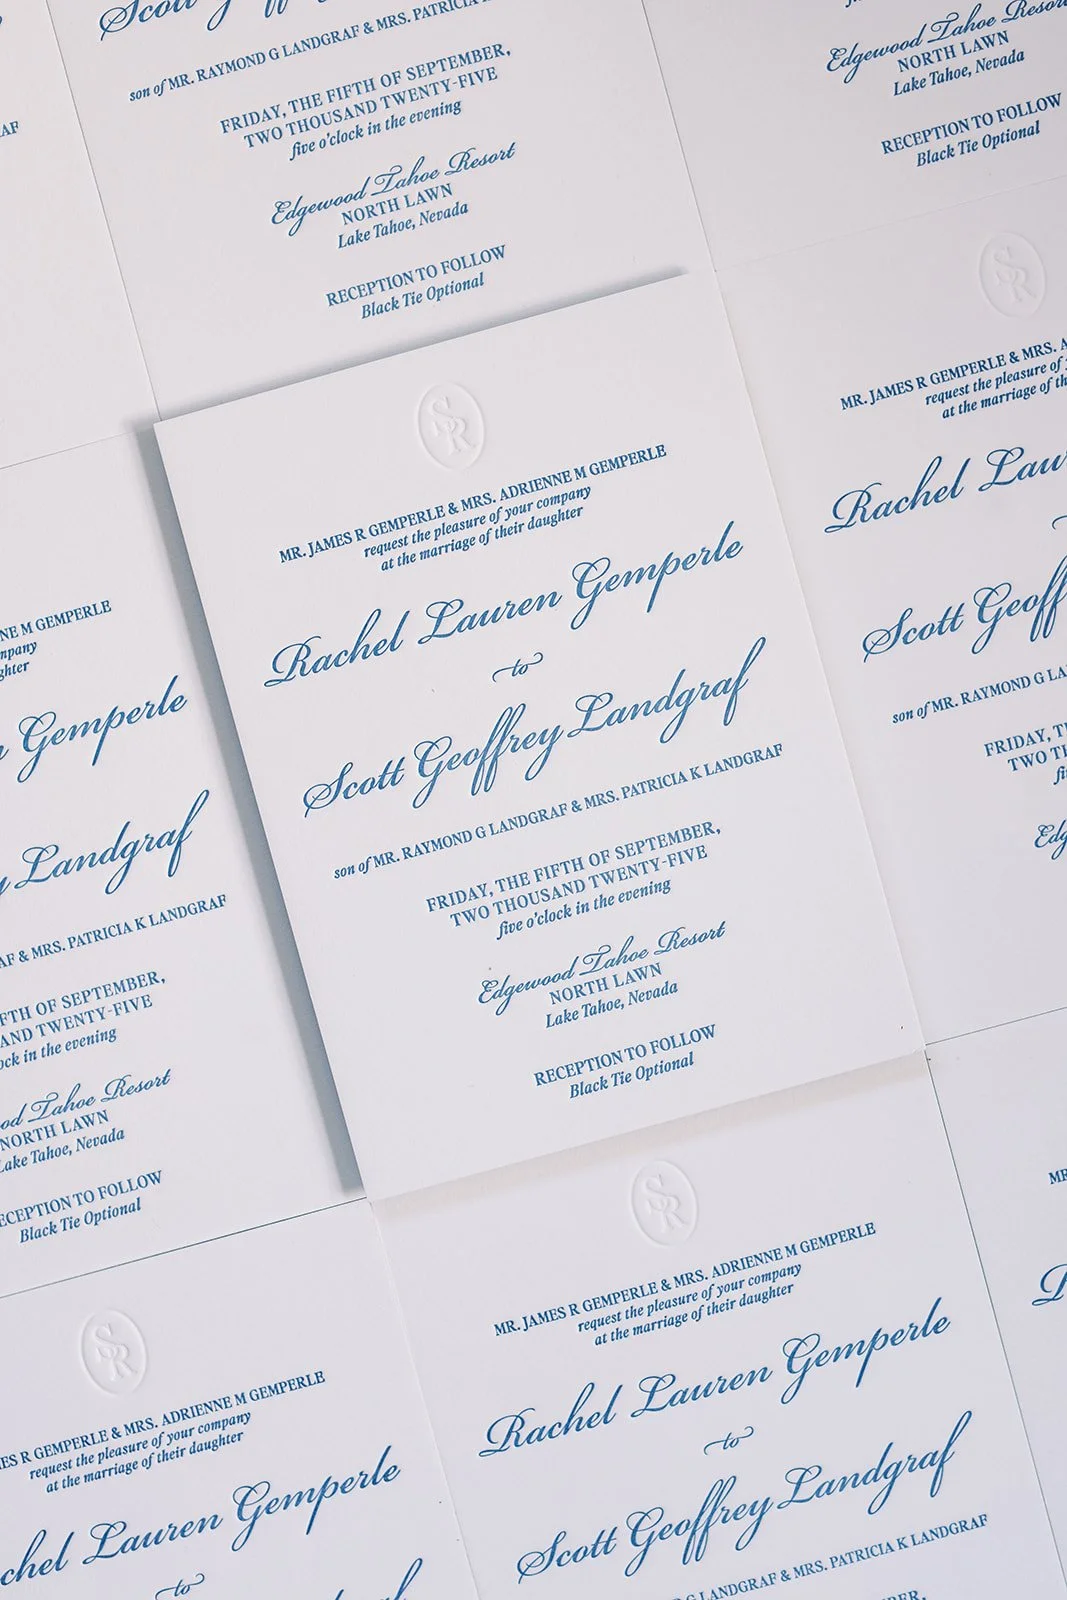 Scott
son of MR. RAYMOND G LANDGRAF & MRS. PATRICIA K
FRIDAY, THE FIFTH OF SEPTEMBER,
TWO THOUSAND TWENTY-FIVE
five o'clock in the evening
Edgewood Tahoe Resort
NORTH LAWN
Lake Tahoe, Nevada
RECEPTION TO FOLLOW
Black Tie Optional
Edgewood Tahoe Resort
NORTH LAWN
Lake Tahoe, Nevada
RECEPTION TO FOLLOW
Black Tie Optional
SR
MR. JAMES R GEMPERLE & MRS. ADRIENNE M GEMPERLE
request the pleasure of your company
at the marriage of their daughter
Rachel Lauren Gemperle
to
Scott Geoffrey Landgraf
son of MR. RAYMOND G LANDGRAF & MRS. PATRICIA K LANDGRAF
FRIDAY, THE FIFTH OF SEPTEMBER,
TWO THOUSAND TWENTY-FIVE
five o'clock in the evening
Edgewood Tahoe Resort
NORTH LAWN
Lake Tahoe, Nevada
RECEPTION TO FOLLOW
Black Tie Optional
SR
MR. JAMES R GEMPERLE & MRS.
request the pleasure of
at the marriage of
Rachel
Scott
son of MR. RAYMOND G
FRIDAY,
TWO
M GEMPERLE
Gemperle
Landgraf
& MRS. PATRICIA K LANDGRAF
OF SEPTEMBER,
TWENTY-FIVE
in the evening
Tahoe Resort
NORTH LAWN
Lake Tahoe, Nevada
TO FOLLOW
Black Tie Optional
SR
R GEMPERLE & MRS. ADRIENNE M GEMPERLE
request the pleasure of your company
at the marriage of their daughter
Lauren Gemperle
to
SR
MR. JAMES R GEMPERLE & MRS. ADRIENNE M GEMPERLE
request the pleasure of your company
at the marriage of their daughter
Rachel Lauren Gemperle
to
Scott Geoffrey Landgraf
G LANDGRAF & MRS. PATRICIA K LANDGRAF